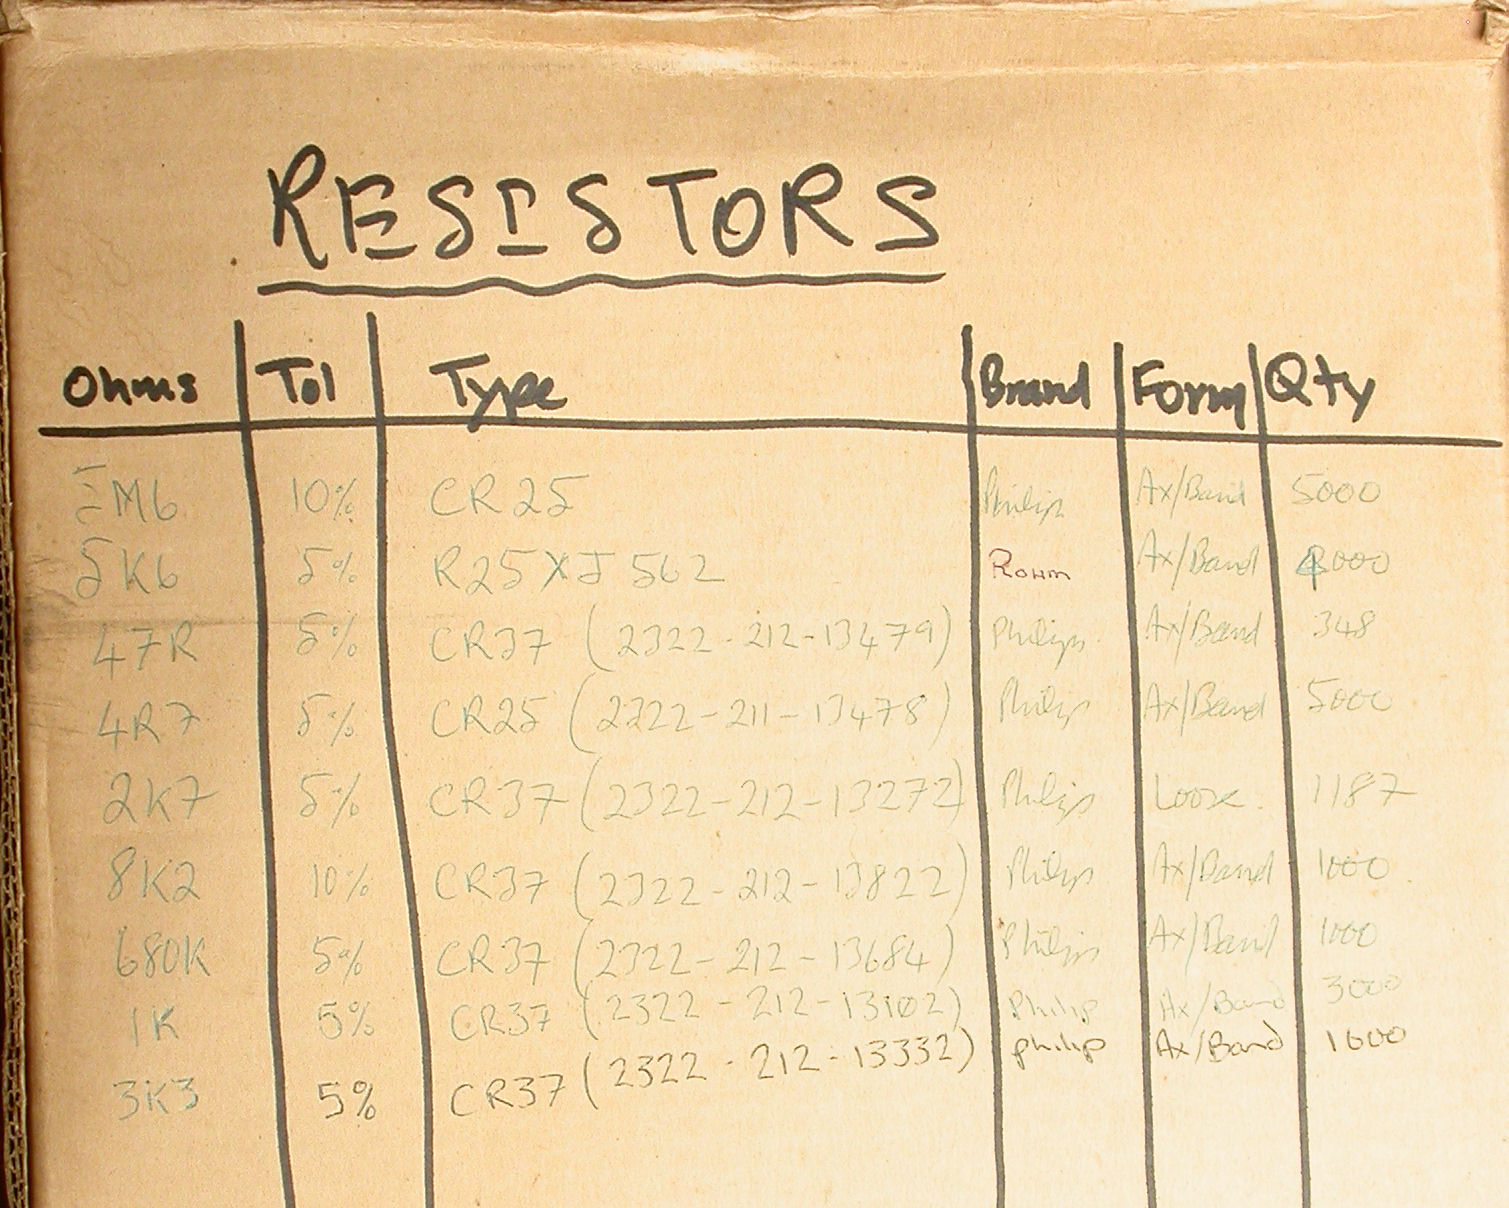 RESISTORS
Ohms Tol Type Brand Form Qty
5M6 10% CR25 Philips Ax/Band 5000
5K6 5% R25XJ562 Rohm Ax/Band 000
47R 5% CR37 (2322-212-13479) Philips Ax/Band 348
4R7 5% CR25 (2322-211-13478) Philips Ax/Band 5000
2K7 5% CR37 (2322-212-13272) Philips Loose. 1187
8K2 10% CR37 (2322-212-13822) Philips Ax/Band 1000
680K 5% CR37 (2322-212-13684) Philips Ax/Band 1000
1K 5% CR37 (2322-212-13102) Philip Ax/Band 3000
3K3 5% CR37 (2322-212-13332) philip Ax/Band 1000